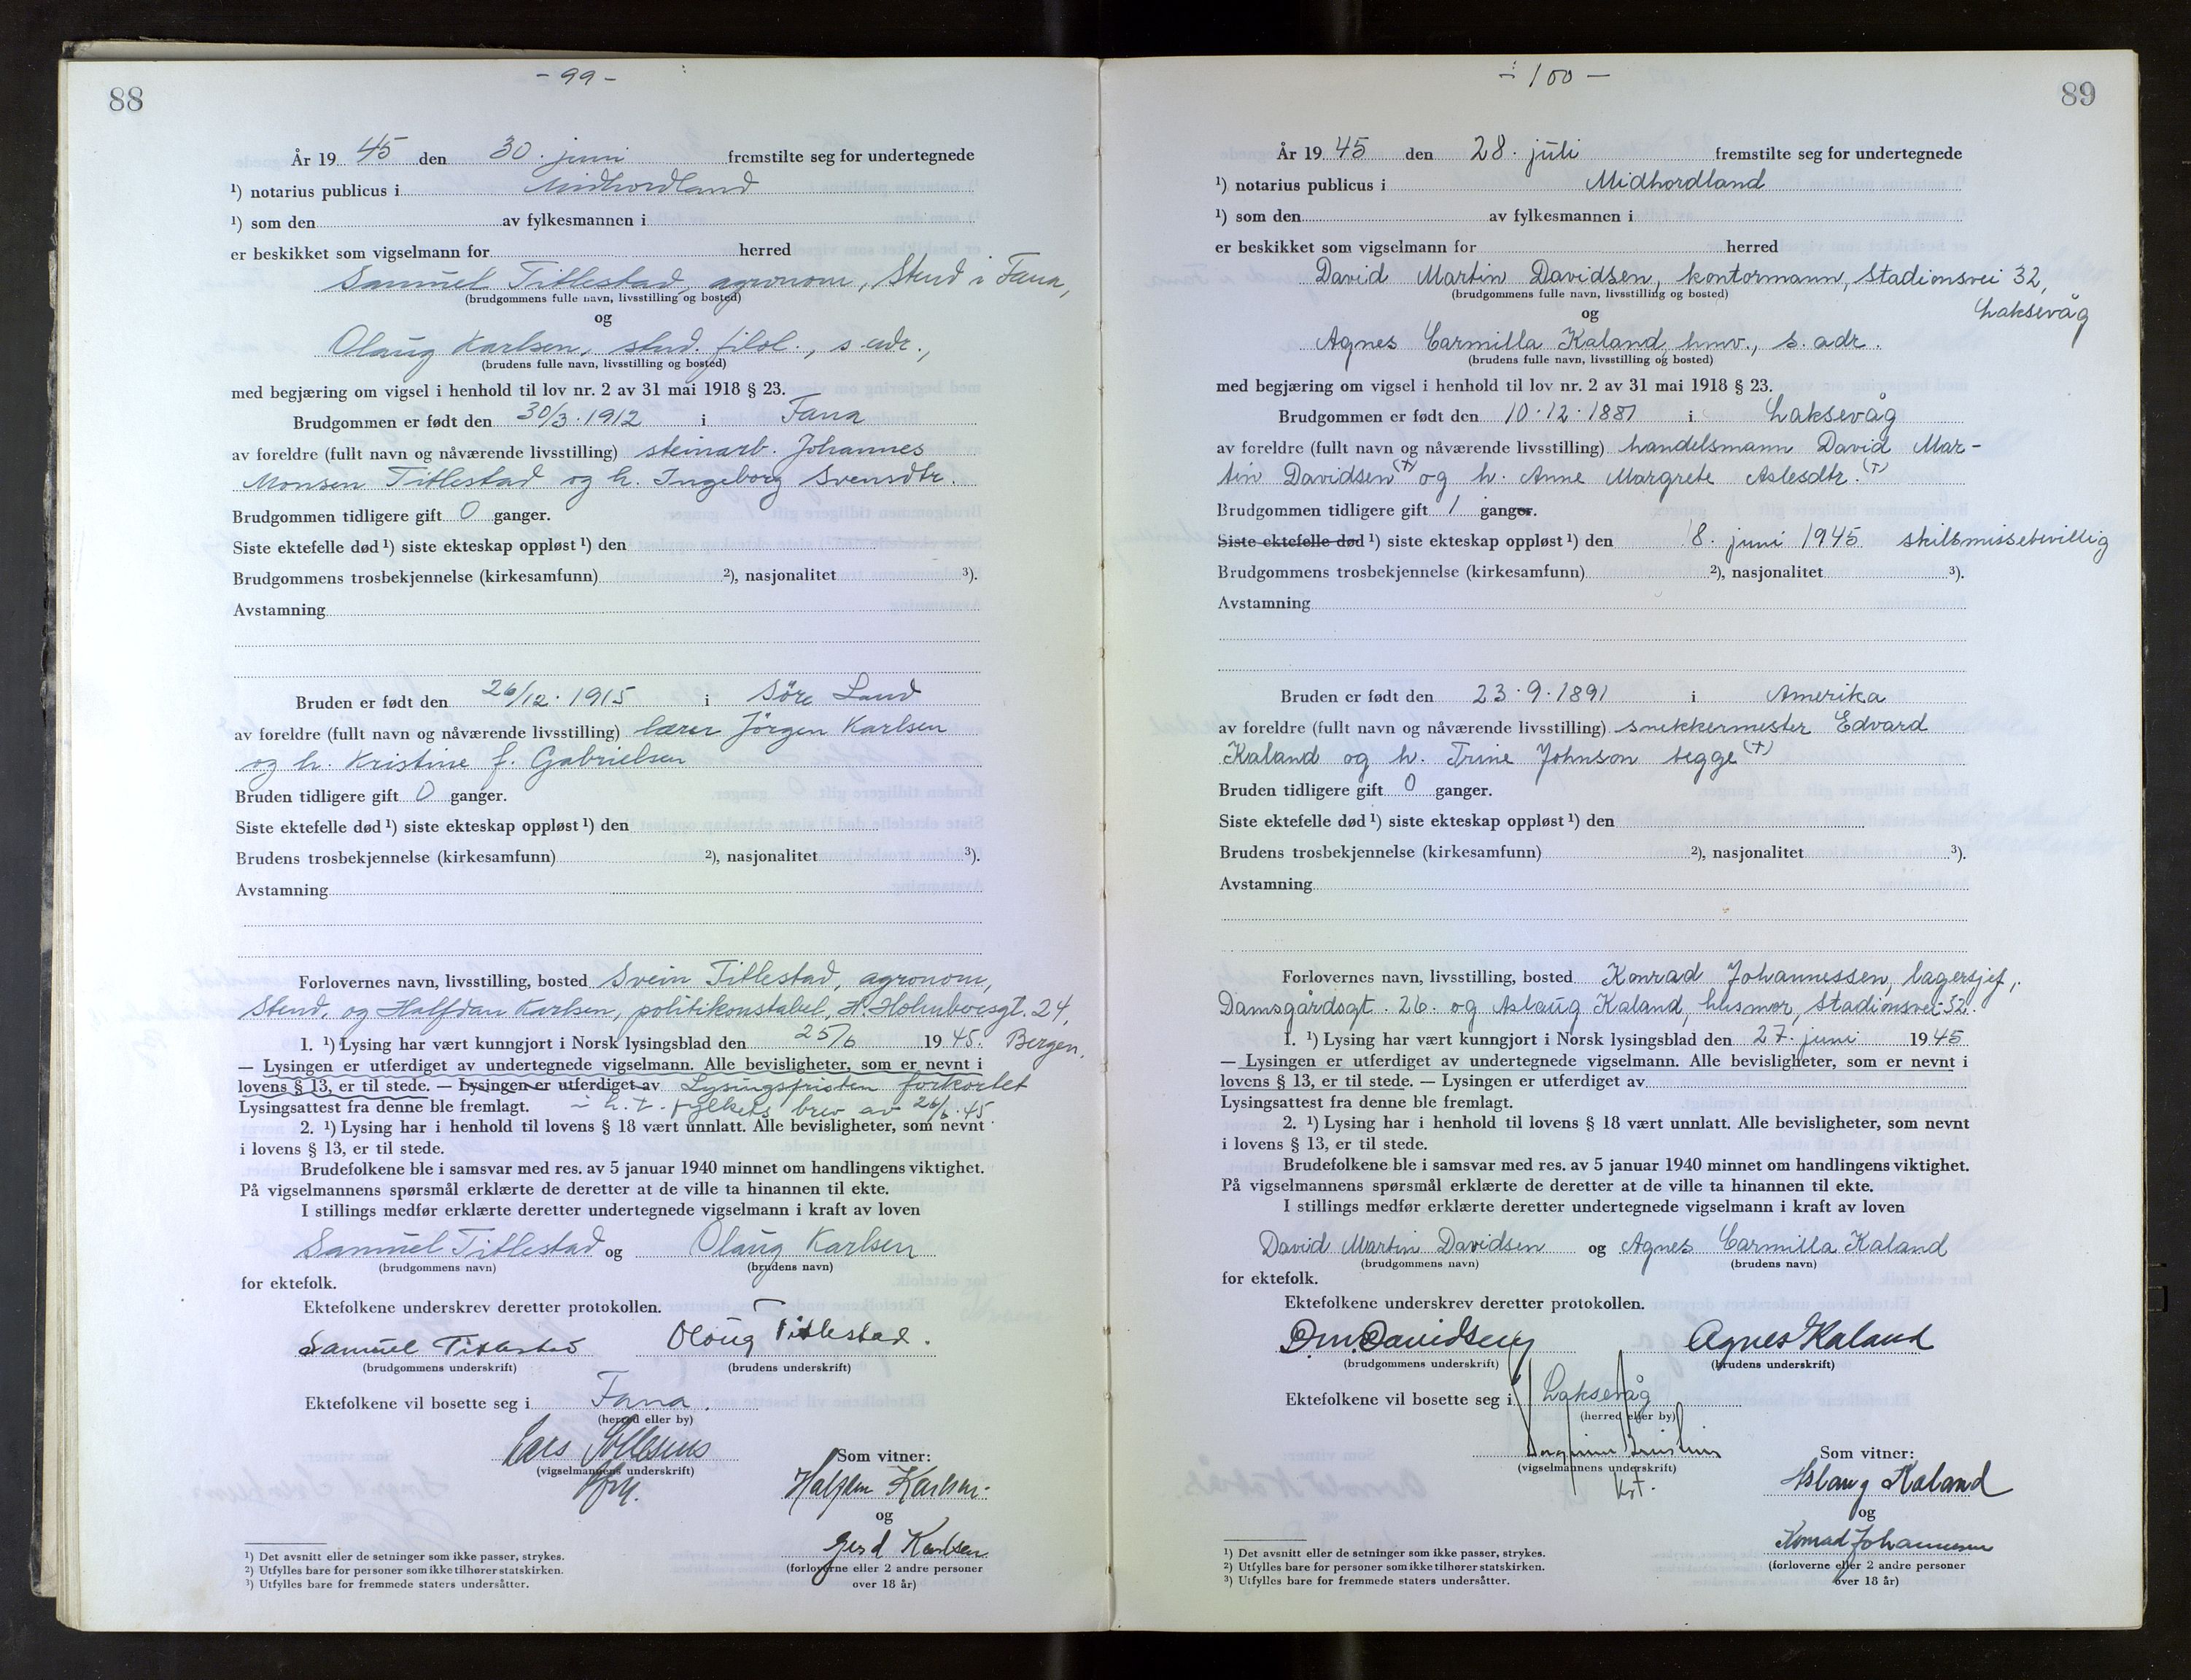 88
- 99 -
År 19 45 den 30. juni fremstilte seg for undertegnede
¹) notarius publicus i Midhordland
¹) som den av fylkesmannen i
er beskikket som vigselmann for herred
Samuel Titlestad, agronom, Stend i Fana,
(brudgommens fulle navn, livsstilling og bosted)
og
Olaug Karlsen, stud. filol., s. adr.,
(brudens fulle navn, livsstilling og bosted)
med begjæring om vigsel i henhold til lov nr. 2 av 31 mai 1918 § 23.
Brudgommen er født den 30/3. 1912 i Fana
av foreldre (fullt navn og nåværende livsstilling) steinarb. Johannes
Monsen Titlestad og h. Ingeborg Svensdtr.
Brudgommen tidligere gift 0 ganger.
Siste ektefelle død ¹) siste ekteskap oppløst ¹) den
Brudgommens trosbekjennelse (kirkesamfunn) ²), nasjonalitet ³).
Avstamning
Bruden er født den 26/12. 1915 i Söre Land
av foreldre (fullt navn og nåværende livsstilling) lærer Jörgen Karlsen
og h. Kristine f. Gabrielsen
Bruden tidligere gift 0 ganger.
Siste ektefelle død ¹) siste ekteskap oppløst ¹) den
Brudens trosbekjennelse (kirkesamfunn) ²), nasjonalitet ³).
Avstamning
Forlovernes navn, livsstilling, bosted Svein Titlestad, agronom,
Stend, og Halfdan Karlsen, politikonstabel, H. Holmboesgt. 24,
1. ¹) Lysing har vært kunngjort i Norsk lysingsblad den 25/6 19 45. Bergen.
— Lysingen er utferdiget av undertegnede vigselmann. Alle bevisligheter, som er nevnt i
lovens § 13, er til stede. — Lysingen er utferdiget av Lysingsfristen forkortet
Lysingsattest fra denne ble fremlagt. i h. t. fylkets brev av 26/6. 45
2. ¹) Lysing har i henhold til lovens § 18 vært unnlatt. Alle bevisligheter, som nevnt
i lovens § 13, er til stede.
Brudefolkene ble i samsvar med res. av 5 januar 1940 minnet om handlingens viktighet.
På vigselmannens spørsmål erklærte de deretter at de ville ta hinannen til ekte.
I stillings medfør erklærte deretter undertegnede vigselmann i kraft av loven
Samuel Titlestad og Olaug Karlsen
(brudgommens navn) (brudens navn)
for ektefolk.
Ektefolkene underskrev deretter protokollen.
Samuel Titlestad Olaug Titlestad.
(brudgommens underskrift) (brudens underskrift)
Ektefolkene vil bosette seg i Fana.
(herred eller by)
Lars
(vigselmannens underskrift)
Som vitner:
Halfdan Karlsen
og
Gerd Karlsen
(forloverne eller 2 andre personer
over 18 år)
¹) Det avsnitt eller de setninger som ikke passer, strykes.
²) Utfylles bare for personer som ikke tilhører statskirken.
³) Utfylles bare for fremmede staters undersåtter.
- 100 -
89
År 19 45 den 28. juli fremstilte seg for undertegnede
¹) notarius publicus i Midhordland
¹) som den av fylkesmannen i
er beskikket som vigselmann for herred
David Martin Davidsen, kontormann, Stadionsvei 32,
Laksevåg
(brudgommens fulle navn, livsstilling og bosted)
og
Agnes Carmilla Kaland, hmv., s. adr.
(brudens fulle navn, livsstilling og bosted)
med begjæring om vigsel i henhold til lov nr. 2 av 31 mai 1918 § 23.
Brudgommen er født den 10.12.1881 i Laksevåg
av foreldre (fullt navn og nåværende livsstilling) handelsmann David Mar-
tin Davidsen (†) og h. Anne Margrete Aslesdtr. (†)
Brudgommen tidligere gift 1 ganger.
Siste ektefelle død ¹) siste ekteskap oppløst ¹) den 8. juni 1945 skilsmissebevillig
Brudgommens trosbekjennelse (kirkesamfunn) ²), nasjonalitet ³).
Avstamning
Bruden er født den 23.9.1891 i Amerika
av foreldre (fullt navn og nåværende livsstilling) snekkermester Edvard
Kaland og h. Trine Johnson begge (†)
Bruden tidligere gift 0 ganger.
Siste ektefelle død ¹) siste ekteskap oppløst ¹) den
Brudens trosbekjennelse (kirkesamfunn) ²), nasjonalitet ³).
Avstamning
Forlovernes navn, livsstilling, bosted Konrad Johannessen, lagersjef,
Damsgårdsgt. 26. og Aslaug Kaland, husmor, Stadionsvei 32.
1. ¹) Lysing har vært kunngjort i Norsk lysingsblad den 27. juni 19 45
— Lysingen er utferdiget av undertegnede vigselmann. Alle bevisligheter, som er nevnt i
lovens § 13, er til stede. — Lysingen er utferdiget av
Lysingsattest fra denne ble fremlagt.
2. ¹) Lysing har i henhold til lovens § 18 vært unnlatt. Alle bevisligheter, som nevnt
i lovens § 13, er til stede.
Brudefolkene ble i samsvar med res. av 5 januar 1940 minnet om handlingens viktighet.
På vigselmannens spørsmål erklærte de deretter at de ville ta hinannen til ekte.
I stillings medfør erklærte deretter undertegnede vigselmann i kraft av loven
David Martin Davidsen og Agnes Carmilla Kaland
(brudgommens navn) (brudens navn)
for ektefolk.
Ektefolkene underskrev deretter protokollen.
D.M. Davidsen Agnes Kaland
(brudgommens underskrift) (brudens underskrift)
Ektefolkene vil bosette seg i Laksevåg
(herred eller by)
(vigselmannens underskrift)
Kst.
Som vitner:
Aslaug Kaland
og
Konrad Johannessen
(forloverne eller 2 andre personer
over 18 år)
¹) Det avsnitt eller de setninger som ikke passer, strykes.
²) Utfylles bare for personer som ikke tilhører statskirken.
³) Utfylles bare for fremmede staters undersåtter.